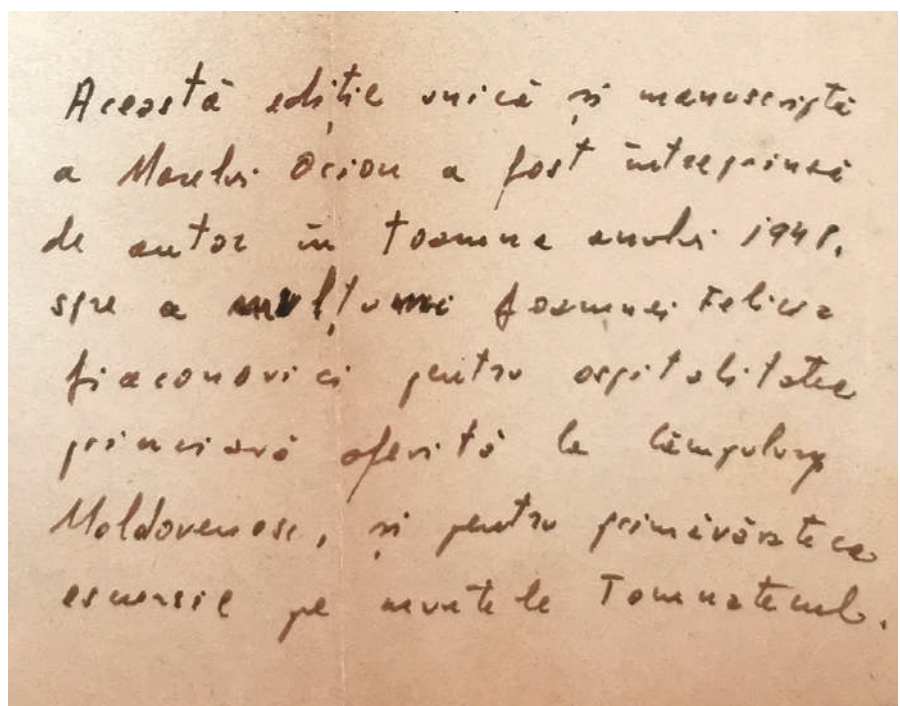 Această ediție unică și manuscriptă
a Marelui Ocion a fost întreprinsă
de autor în toamna anului 1948.
spre a mulțumi doamnei Felicia
Diaconovici pentru ospitalitatea
princiară oferită la Câmpulung
Moldovenesc, și pentru primăvărateca
escursie pe muntele Tomnatecul.